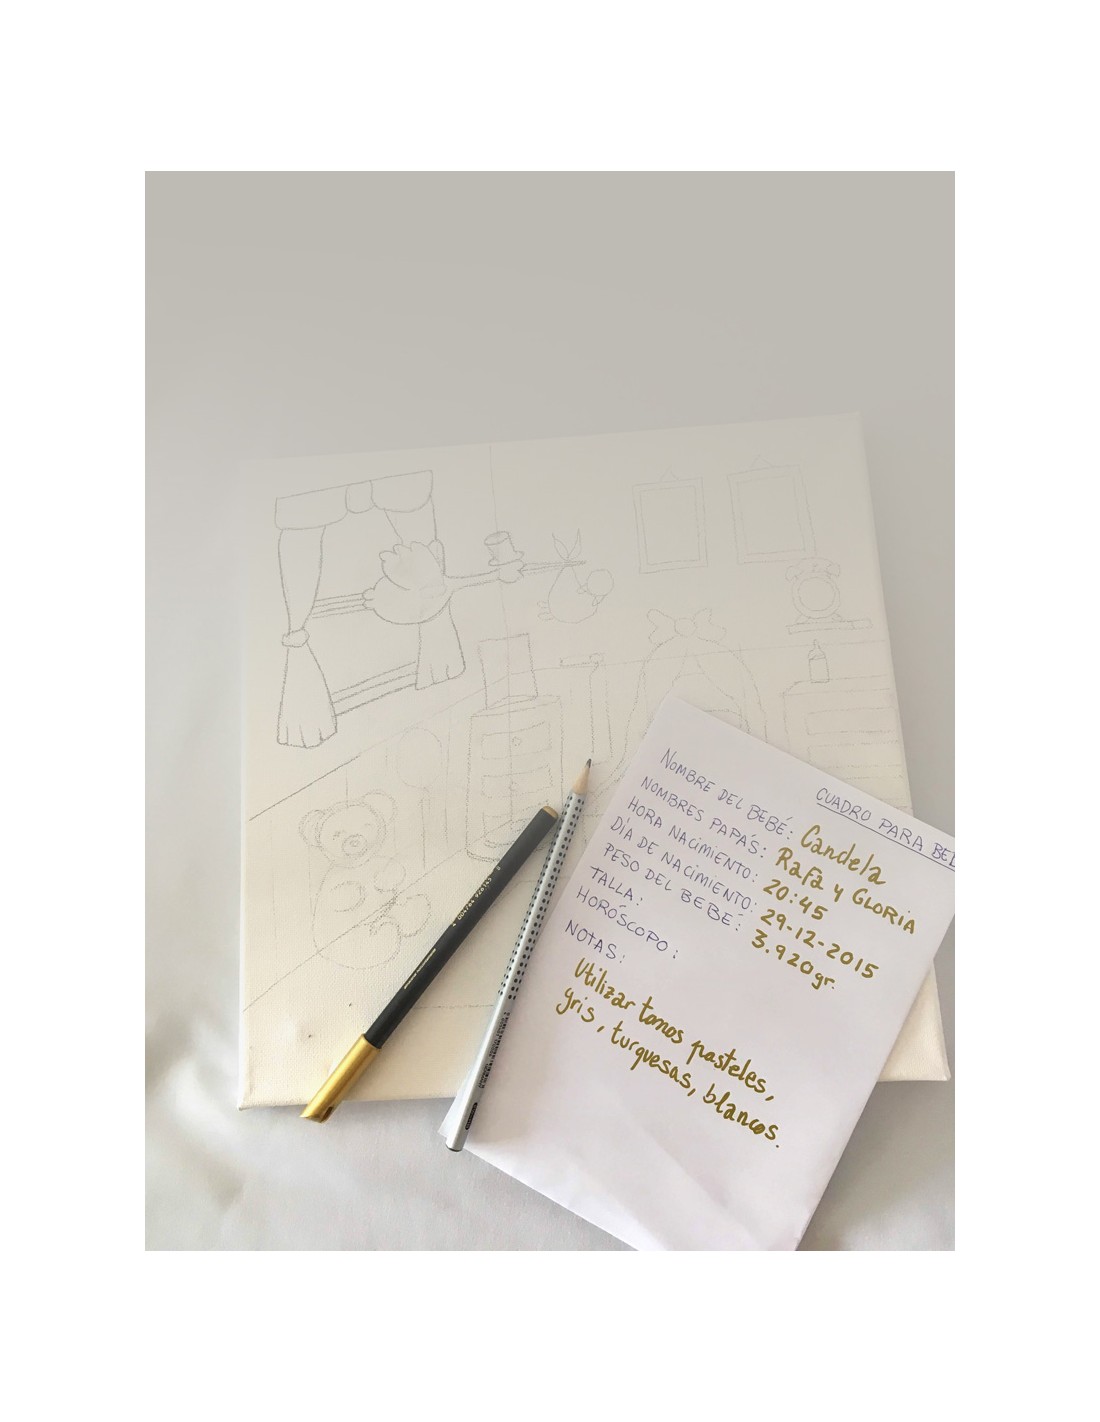 CUADRO PARA
NOMBRE DEL BEBÉ: Candela
NOMBRES PAPÁS: Rafa y GLORIA
HORA NACIMIENTO: 20:45
DÍA DE NACIMIENTO: 29-12-2015
PESO DEL BEBÉ: 3.920gr.
TALLA:
HORÓSCOPO:
NOTAS:
Utilizar tonos pasteles,
gris, turquesas, blancos.